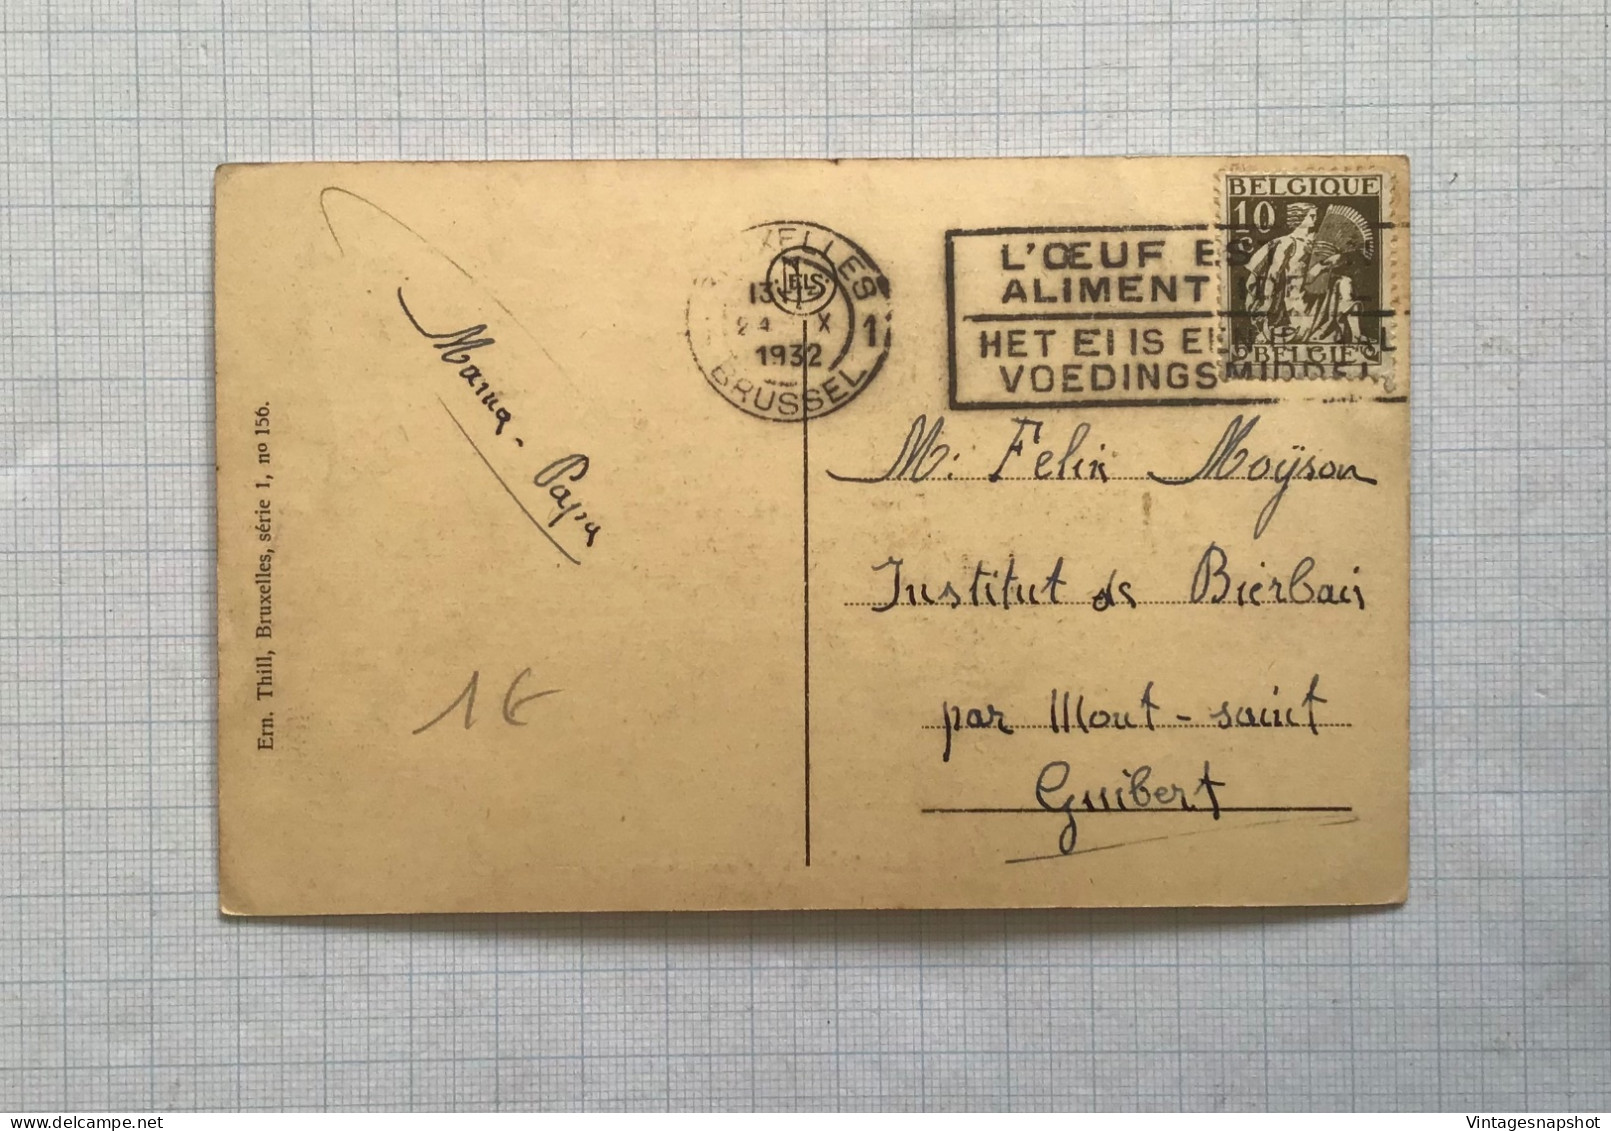 Ern. Thill, Bruxelles, série 1, no 156.
Mama - Papa
1€
BRUXELLES
NELS
13
24 X
1932
1
BRUSSEL
L'ŒUF ES
ALIMENT
HET EI IS EEN
VOEDINGSMIDDEL
BELGIQUE
10
C
BELGIE
M. Felix Moÿson
Institut de Bierbais
par Mont-saint
Guibert
Vintagesnapshot